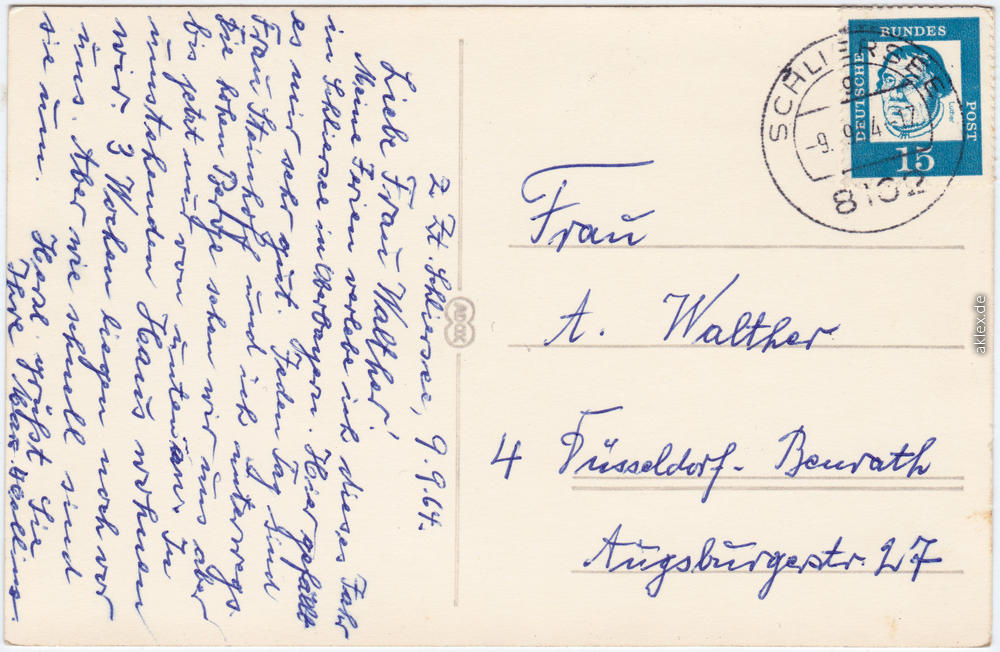 z. Zt. Schliersee, 9.9.64.
Liebe Frau Walther!
Meine Ferien verlebe ich dieses Jahr
in Schliersee in Oberbayern. Hier gefällt
es mir sehr gut. Jeden Tag sind
Frau Steinhoff und ich unterwegs.
Die hohen Berge sehen wir uns aber
bis jetzt nur von unten an. In
umstehenden Haus wohnen
wir. 3 Wochen liegen noch vor
uns. Aber wie schnell sind
sie um. Herzl. grüßt Sie
Ihre
Frau
A. Walther
4 Düsseldorf-Benrath
Augsburgerstr. 27
DEUTSCHE BUNDES POST
15
Luther
SCHLIERSEE
-9. 9. 64-17
8162
ADOX
aklex.de